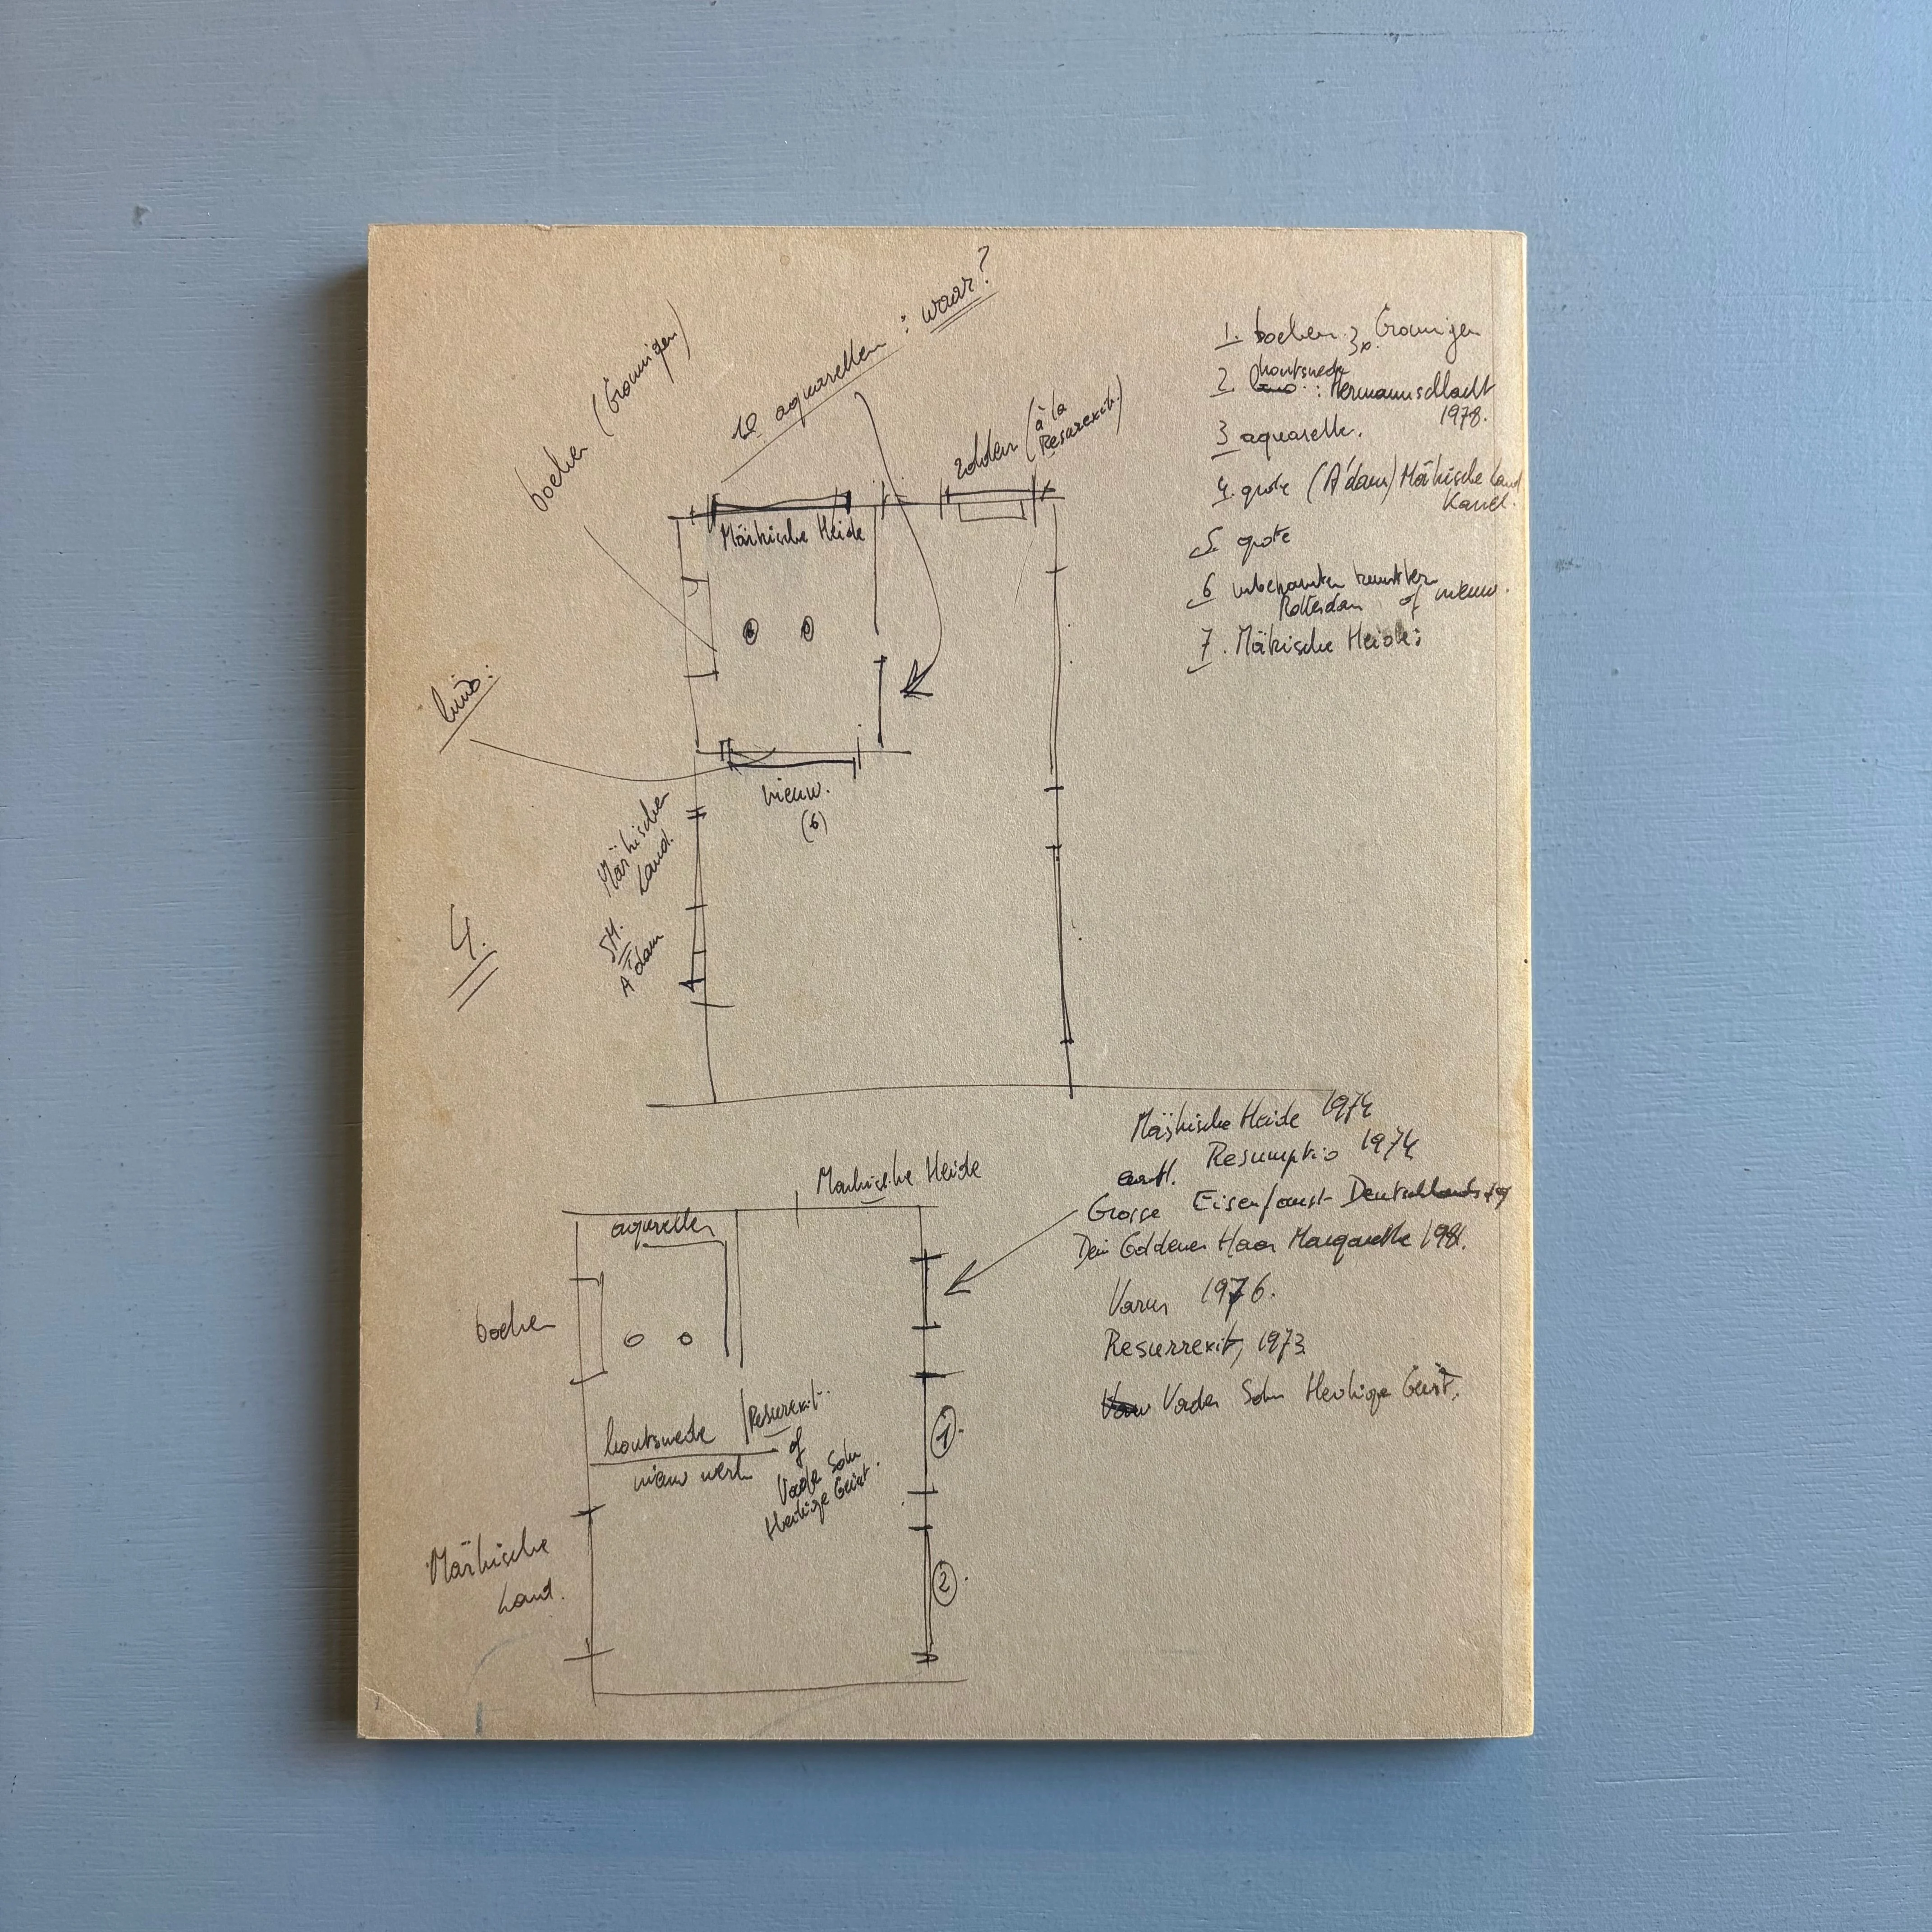 boeken (Groningen)
10 aquarellen : waar?
zolder (à la
Resurrexit.)
Märkische Heide
lino:
nieuw.
(6)
Märkischer
Land.
SM.
A'dam
4.
1. boeken 3x Groningen
houtsnede
2. lino : Hermannschlacht
1978.
3 aquarelle.
4. grote (A'dam) Märkische Land
5. grote
6 unbekannten
Rotterdam of nieuw.
7. Mäkische Heide:
Märkische Heide 1974
Resumptio 1974
Grosse Eisenfaust Deutschlands
Dein Goldenes Haar Margarethe 1981.
Varus 1976.
Resurrexit, 1973
Vader Sohn Heilige Geist.
Markische Heide
aquarellen
boeken
houtsnede / Resurexit.
nieuw werk
of
Vader Sohn
Heilige Geist.
1.
2.
Märkische
Land.